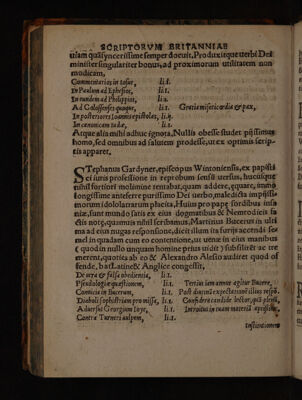 SCRIPTORVM BRITANNIAE
uiam quàm syncerissime semper docuit. Prodiuxitque uerbi Dei
minister singulariter bonus, ad proximorum utilitatem non
modicam,
Commentarios in Iosue, li.i.
In Paulum ad Ephesios, li.i.
In eundem ad Philippios, li.i.
Ad Colossenses quoque, li.i. Gratia misericordia & pax,
In posteriores Ioannis epistolas, li.ij.
In canonicam Iudae, li.i.
Atque alia mihi adhuc ignota. Nullis obesse studet pijssimus
homo, sed omnibus ad salutem prodesse, ut ex optimis scrip-
tis apparet.
STephanus Gardyner, episcopus Wintoniensis, ex papisti
ci iuris professione in reprobum sensum uersus, hucusque
nihil fortiori molimine tentabat, quam addere, equare, immò
longissime anteferre purissimo Dei uerbo, maledicta impijssi-
morum idololatrarum placita. Huius pro papae sordibus insa-
niae, sunt mundo satis ex eius dogmatibus & Nemrodicis fa
ctis notae, quamuis nihil scribamus. Martinus Bucerus in ulti
ma ad eius nugas responsione, dicit illum ita furijs accendi se-
mel in quadam cum eo contentione, ut uenae in eius manibus
(quod in nullo unquam homine prius uidit) subsilirēt ac tre
merent, quoties ab eo & Alexandro Alesio audiret quod of
fende, bat Latinè & Anglice congessit,
De uera & falsa obedientia, li.i. Tertius iam annus agitur Bucere,
Pseudologiae quaestionem, li.i. Post diutinā expectationē illius respō.
Conuicia in Bucerum, li.i. Considera candide lector, quā plenā,
Diaboli sophistriam pro missa, li.i. Introitus in tuam materiā apostolo,
Aduersus Georgium Ioye, li.i.
Contra Turneri uulpem, li.i.